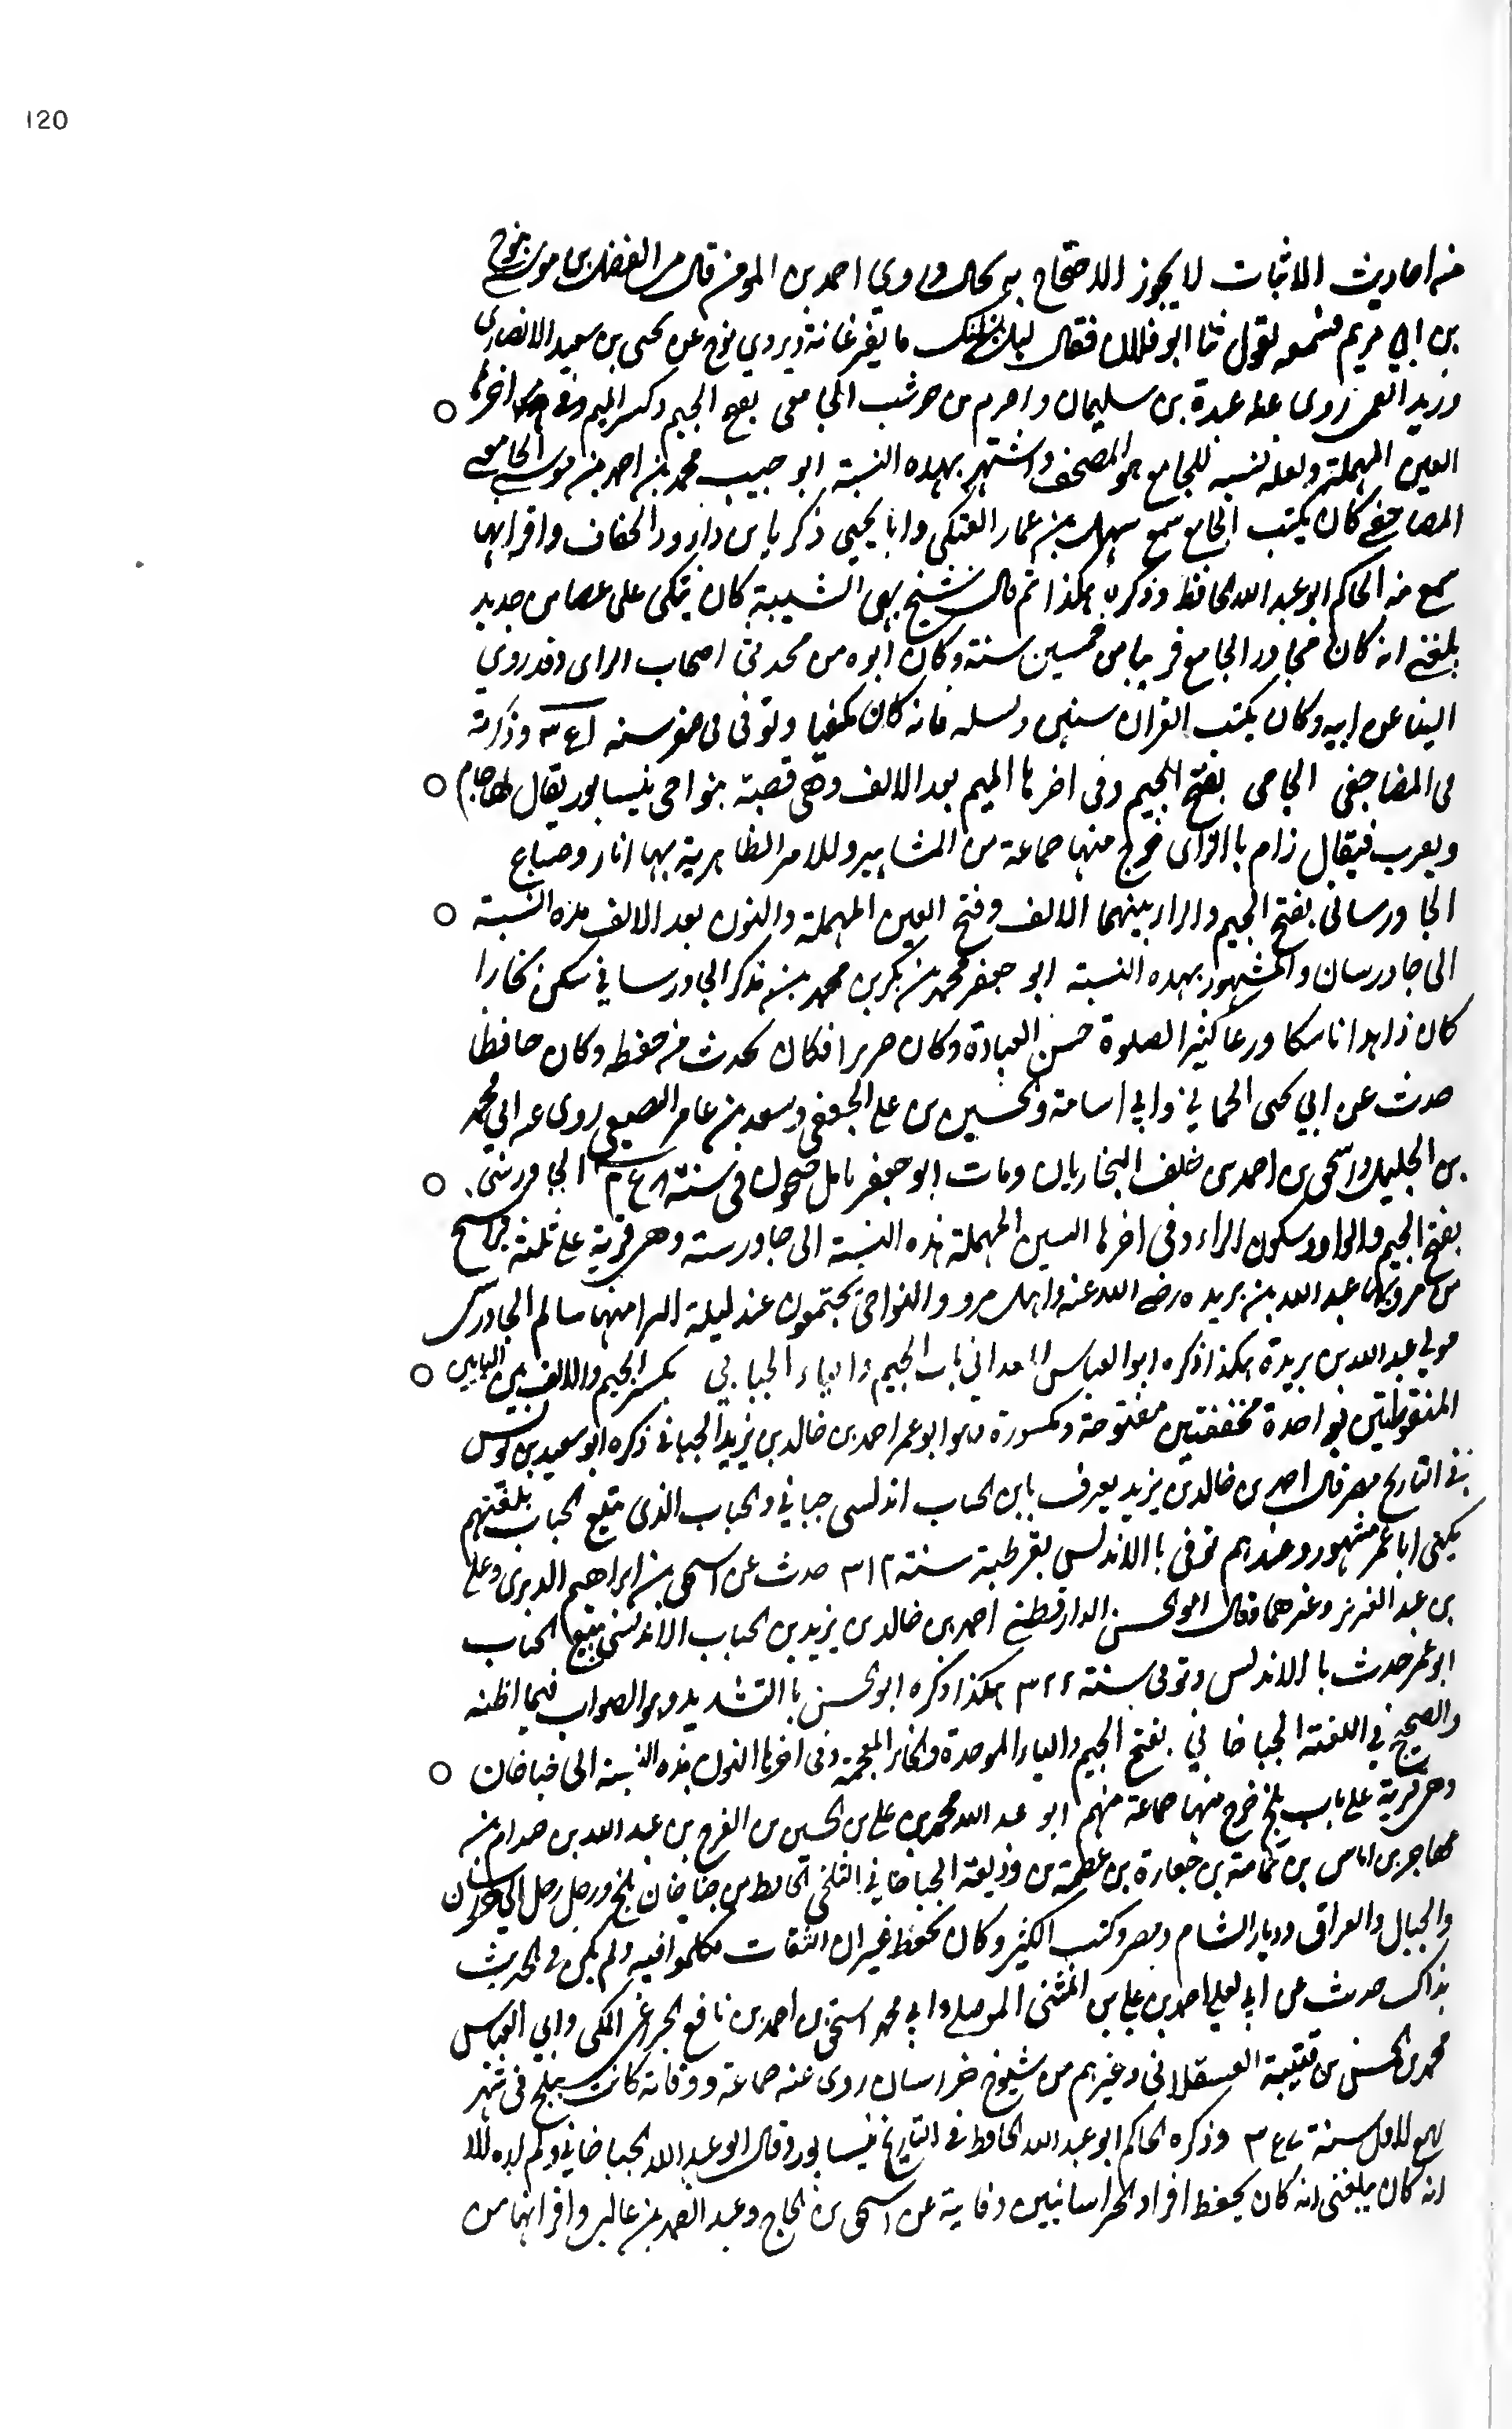 120
منه احاديث الاثبات لا يجوز الاحتجاج به بحال وروي احمد بن قال الفضل بن موسى نوح
بن ابي مريم فسمعه يقول ثنا ابو فلان فقال ما ويروي نوح عن يحيى بن سعيد الانصاري
وزيد العمى روى عنه عبدة بن سليمان واصرم بن حوشب الجامعى بفتح الجيم وكسر الميم وفى اخرها
العين المهملة ولعله نسبه للجامع هو المصحف واشتهر بهذه النسبة ابو حبيب محمد بن احمد بن موسى الجامعي
المصاحفي كان يكتب الجامع سمع سهل بن عمار العتكي وابا يحيى زكريا بن داوود الخفاف واقرانهما
سمع منه الحاكم ابو عبد الله الحافظ وذكره هكذا ثم قال شيخ بهى الشيبة كان يتكى على عصا من حديد
بلغني انه كان مجاور الجامع قريبا من خمسين سنة وكان ابوه من محدثى اصحاب الراى وقد روي
الينا عن ابيه وكان يكتب القران سنين فانه كان وتوفى فى صفر سنه وذكرته
فى المصاحفى الجامى بفتح الجيم وفى اخرها الميم بعد الالف وهى قصبة بنواحى نيسابور يقال لها جام
ويعرب فيقال زام باالزاى خرج منها جماعة من المشاهير وللامر الظاهرية بها اثار وضياع
الجاورسانى بفتح الجيم والرا بينهما الالف وفتح العين المهملة والنون بعد الالف هذه النسبة
الى جاورسان والمشهور بهده النسبة ابو جعفر محمد بن بكر بن محمد بن مذكر الجاورساني سكن بخارا
كان زاهدا ناسكا ورعا كثير الصلوة حسن العبادة وكان ضريرا فكان يحدث من حفظه وكان حافظا
حدث عن ابي يحيى الحماني وابي اسامة والحسين بن علي الجعفى وسعيد بن عامر الضبعي روى عنه ابي محمد
بن الجليل واسحق بن احمد بن خلف البخاريان ومات ابو جعفر فى سنة الجاورسى
بفتح الجيم والواو وسكون الراء وفى اخرها السين المهملة هذه النسبة الى جاورسه وهى قرية على ثلثه فراسخ
من مرو بها عبد الله بن بريده رضى الله عنه واهل مرو والنواحى يجتمعون عنده ليلة منها سالم الجاورسى
مولي عبد الله بن بريدة هكذا ذكره ابو العباس المعداني باب الجيم والباء الجبابي بكسر الجيم والالف بين البايين
المنقوطتين بواحدة مخففتين مفتوحة ومكسورة هو ابو عمر احمد بن خالد بن يزيد الجبابي ذكره ابو سعيد بن يونس
في التاريخ مصر قال احمد بن خالد بن يزيد يعرف باابن الجباب اندلسى جبابي والجباب الذى يبيع الجباب بلغتهم
يكنى ابا عمر مشهور وعندهم توفى باالاندلس بقرطبة سنة ٣١٢ حدث عن اسحق بن ابراهيم الدبرى وعلي
بن عبد العزيز وغيرهما وقال ابو الحسن الدارقطني احمد بن خالد بن يزيد بن الجباب الاندلسى يبيع الجباب
ابو عمر حدث باالاندلس وتوفى سنة ٣٢٢ هكذا ذكره ابو الحسن باالتشديد وهو الصواب فيما اظنه
والصحيح في اللغة الجباخاني بفتح الجيم والباء الموحدة والخاء المعجمة وفى اخرها النون هذه النسبة الى جباخان
وهى قرية على باب بلخ خرج منها جماعة منهم ابو عبد الله محمد بن علي بن الحسين بن الفرج بن عبد الله بن
مهاجر بن اياس بن ثمامة بن بن عطية بن وديعة الجباخاني البلخى الحافظ من جباخان بلخ ورحل رحل الي خراسان
والجبال والعراق وديار الشام ومصر وكتب الكثير وكان يحفظ غير ان الثقات تكلموا فيه ولم يكن في الحديث
بذاك حدث عن ابي يعلي احمد بن علي بن المثنى الموصلي وابي محمد اسحق بن احمد بن نافع الخزاعي المكى وابي العباس
محمد بن الحسن بن قتيبة العسقلانى وغيرهم من شيوخ خراسان روى عنه جماعة ووفاته كانت ببلخ فى شهر
ربيع الاول سنة ٣٤٧ وذكره الحاكم ابو عبد الله الحافظ في التاريخ نيسابور وقال ابو عبد الله الجباخاني ولم اره الا
انه كان يبلغنى انه كان يحفظ افراد الخراسانيين وغاية عن اسحق بن الحاج وعبد الصمد بن غالب واقرانهما من